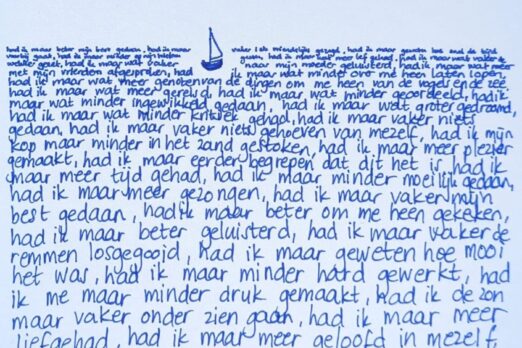 had ik maar beter mijn best gedaan, had ik maar vaker l als vriendelijk gezegd, had ik maar geweten hoe snel de tijd
voorbij gaat, had ik maar minder op mijn telefoon gezeten, had ik maar meer lief gehad, had ik maar wat vaker de
had ik maar wat vaker naar mijn moeder geluisterd, had ik maar wat meer
met mijn vrienden afgesproken, had ik maar wat minder over me heen laten lopen,
had ik maar wat meer genoten van de dingen om me heen van de vogels en de zee
had ik maar wat meer gereisd, had ik maar wat minder geoordeeld, had ik
maar wat minder ingewikkeld gedaan, had ik maar wat groter gedroomd,
had ik maar wat minder kritiek gehad, had ik maar vaker niets
gedaan, had ik maar vaker niets gehoeven van mezelf, had ik mijn
kop maar minder in het zand gestoken, had ik maar meer plezier
gemaakt, had ik maar eerder begrepen dat dit het is, had ik
maar meer tijd gehad, had ik maar minder moeilijk gedaan,
had ik maar meer gezongen, had ik maar vaker mijn
best gedaan, had ik maar beter om me heen gekeken,
had ik maar beter geluisterd, had ik maar vaker de
remmen losgegooid, had ik maar geweten hoe mooi
het was, had ik maar minder hard gewerkt, had
ik me maar minder druk gemaakt, had ik de zon
maar vaker onder zien gaan, had ik maar meer
liefgehad, had ik maar meer geloofd in mezelf,